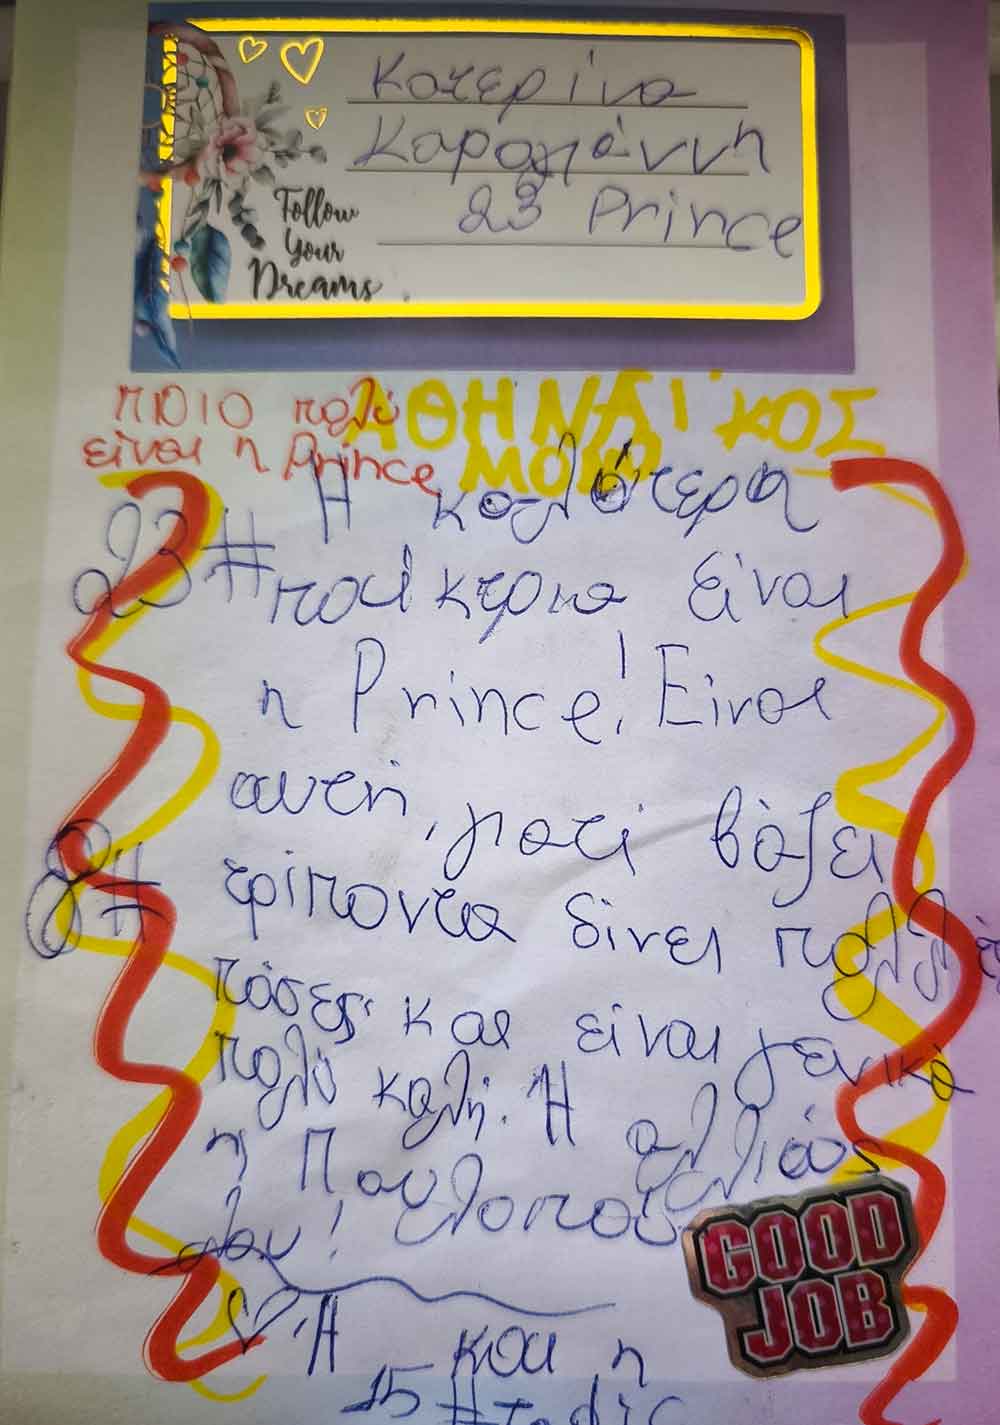 Κατερίνα
Καραγιάννη
23 Prince
Follow
Your
Dreams
ΑΘΗΝΑΪΚΟΣ
ΜΟΝΟ
πιο πολύ
είναι η Prince
Η καλύτερη
23# παίκτρια είναι
η Prince! Είναι
αυτή, γιατί βάζει
8# τρίποντα δίνει πολλές
πάσες και είναι γενικά
πολύ καλή. Ή αλλιώς
η
GOOD
JOB
Ή και η
15#